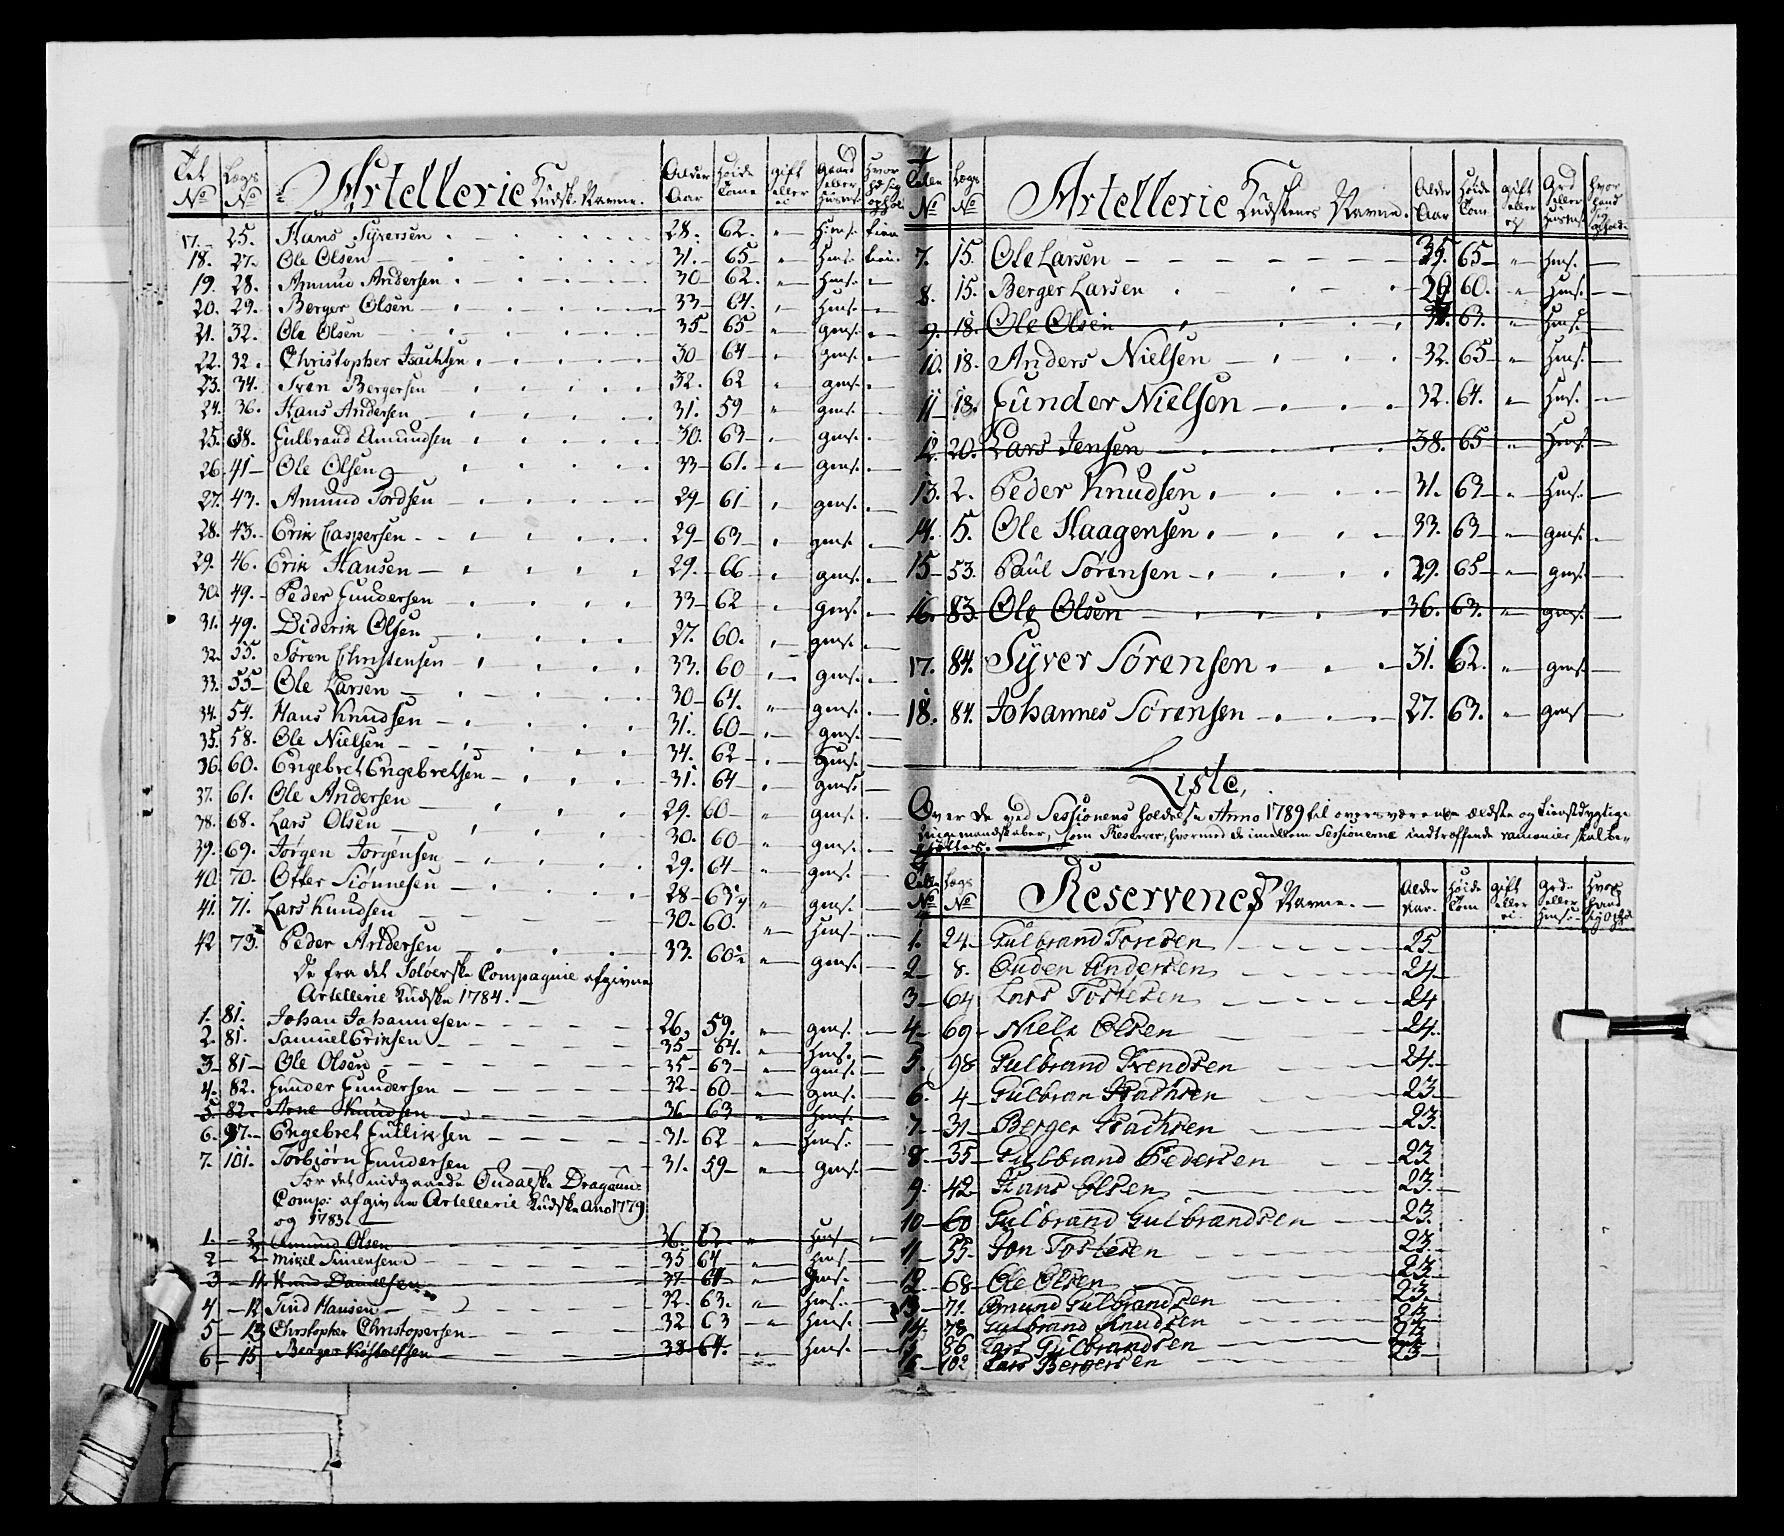 Tel No Lægs No Artellerie Kudsk Navne. Alder Aar Høide Tome gift eller ei gaard eller Huusm: hvor
17. 25. Hans Syversen 28. 62. Huus.
18. 27. Ole Olsen 31. 65 Huus.
19. 28. Amund Andersen 30 62. Huus.
20. 29. Berger Olsen 33 64. Huus.
21. 32. Ole Olsen 35 65 gms.
22. 32. Christopher Isachsen 30 64 gms.
23. 34. Sven Bergersen 32. 62 gms.
24. 36. Hans Andersen 31. 59 gms.
25. 38. Gulbrand Amundsen 30. 63 gms.
26. 41 Ole Olsen 33 61. gms.
27. 43. Amund Tordsen 29 61 gms.
28. 43. Erik Caspersen 29 63 gms.
29. 46. Erik Hansen 29. 66 gms.
30. 49. Peder Gundersen 33 62 gms.
31. 49. Diderik Olsen 27. 60. gms.
32. 55. Søren Christensen 33. 60 gms.
33. 55 Ole Larsen 30 64. gms.
34. 54. Hans Knudsen 31. 60 gms.
35. 58. Ole Nielsen 34. 62 Huus.
36. 60. Engebret Engebretsen 31. 64 gms.
37. 61. Ole Andersen 29. 60 gms.
38. 68. Lars Olsen 30. 60 gms.
39. 69. Jørgen Jørgensen 29. 64 gms.
40. 70. Otter Siønnesen 28 63 gms.
41. 71. Lars Knudsen 30. 60. Huus.
42 73. Peder Andersen 33. 60 gms.
De fra det Soløerske Compagnie afgivne
Artellerie Kudske 1784.
1. 81. Johan Johannesen 26. 59. gms.
2. 81. Samuel Eriksen 35 64. Hms.
3 81 Ole Olsen 35 63 gms.
4. 82. Gunder Gundersen 32 60 gms.
5. 82. Arne Knudsen 36 63 Hms.
6. 97. Engebret Gulliksen 31. 62 Hms.
7. 101. Torbiørn Gundersen 31. 59 gms.
For det nidgaaede Oudalske Dragoun
Comp: afgivne Artellerie Kudske Ano 1779
og 1783.
1. 2 Amund Olsen 36. 62. Hus
2 2 Mikel Simensen 35 64 Hms.
3 11. Knud Danielsen 37 61
4 12 Find Hansen 32. 63. Hms.
5 13 Christopher Christopersen 32 63 Hms.
6 15 Berger Kiøstolfsen 38 64. Hms.
Tellen No Lægs No Artellerie Kudskenes Navne. Alder Aar Høide Tom gift eller ei Grd eller Huusm: hvor hand sig opholder
7. 15. Ole Larsen 35. 65 Hms.
8. 15. Berger Larsen 29 60. Hms.
9. 18. Ole Olsen 63. Hms.
10. 18. Anders Nielsen 32. 65 Hms.
11 18. Gunder Nielsen 32. 64. Hms.
12. 20. Lars Jensen 38. 65 Hms.
13. 2. Peder Knudsen 31. 63 Hms.
14. 5. Ole Haagensen 33. 63 gms.
15 53. Paul Sørensen 29. 65 gms.
16. 83. Ole Olsen 36. 63. gms.
17. 84. Syver Sørensen 31. 62. gms.
18. 84. Johannes Sørensen 27. 63. gms
Liste,
Over de ved Sessionens holdelse Anno 1789 til overværende ældste og tienstdygtige
unge mandskaber, som Reserver, hvormed de imellem Sessionerne indtræffende vacancier skal be-
sættes.
Tellen No Lægs No Reservenes Navne. Alder Aar. Høide Tom gift eller ei Grd eller Huusm: Hvor hand sig oph:
1. 24 Gulbrand Toresen 25
2 8. Ouden Andersen 24
3 64 Lars Tostesen 24
4 69 Niels Olsen 24
5. 98 Gulbrand Svendsen 24
6. 4 Gulbran Isachsen 23
7 31 Berger Isachsen 23.
8 35 Gulbrand Pedersen 23
9. 42 Hans Olsen 23.
10 60 Gulbrand Gulbrandsen 23.
11 55 Jon Tostesen 23.
12 68 Ole Olsen 23
13 71. Amund Gulbrandsen 23.
14. 78. Gulbrand Knudsen 23
15 86 Lars Gulbrandsen 23
16 102 Lars Bergersen 23